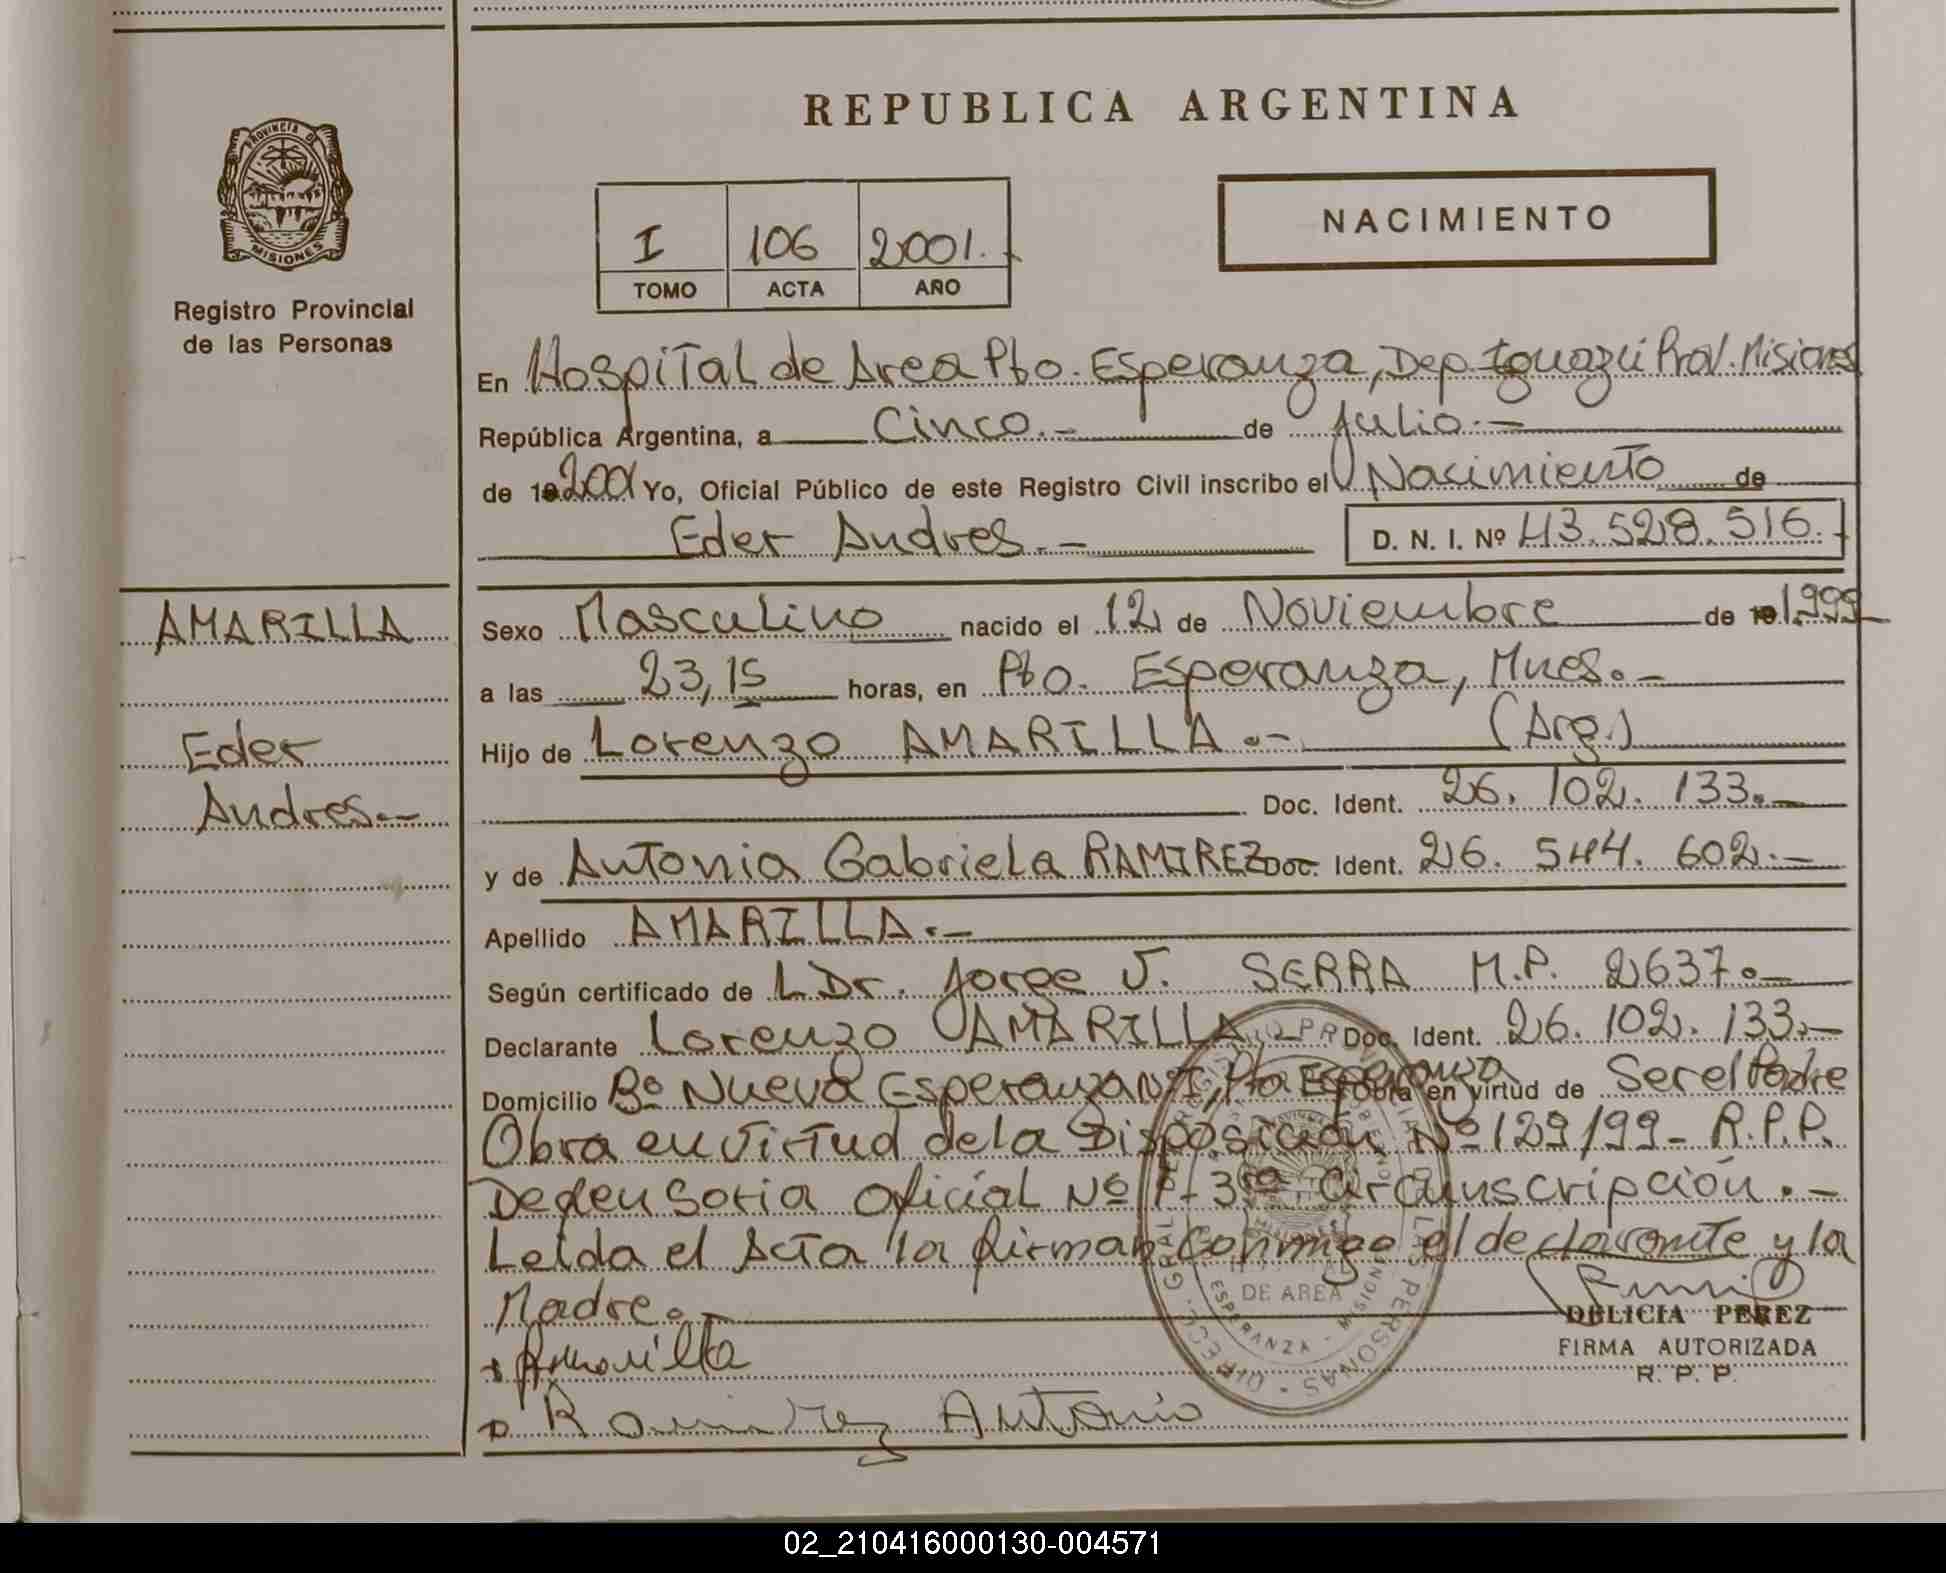 REPUBLICA ARGENTINA
PROVINCIA DE
MISIONES
Registro Provincial
de las Personas
NACIMIENTO
I 106 2001.
TOMO ACTA AÑO
En Hospital de Area Pto. Esperanza, Dep. Iguazú Prov. Misiones
República Argentina, a Cinco.- de Julio.-
de 19 2001 Yo, Oficial Público de este Registro Civil inscribo el Nacimiento de
Eder Andres.- D. N. I. Nº 43.528.516.-
AMARILLA
Eder
Andres.-
Sexo Masculino nacido el 12 de Noviembre de 19 1.999
a las 23,15 horas, en Pto. Esperanza, Mnes.-
Hijo de Lorenzo AMARILLA.- (Arg.)
Doc. Ident. 26. 102. 133.-
y de Antonia Gabriela RAMIREZ Doc. Ident. 26. 544. 602.-
Apellido AMARILLA.-
Según certificado de L Dr. Jorge J. SERRA M.P. 2637.-
Declarante Lorenzo AMARILLA Doc. Ident. 26. 102. 133.-
Domicilio Bº Nueva Esperanza Nº I, Pto Esperanza Obra en virtud de Ser el Padre
Obra en virtud de la Disposición Nº 129/99- R.P.P.
Defensoria Oficial Nº 1- 3ra Circunscripción.-
Leida el Acta la firman conmigo el declarante y la
Madre.-
DELICIA PEREZ
FIRMA AUTORIZADA
R. P. P.
Amarilla
Ramirez Antonia
DE AREA
ESPERANZA - MISIONES
02_210416000130-004571